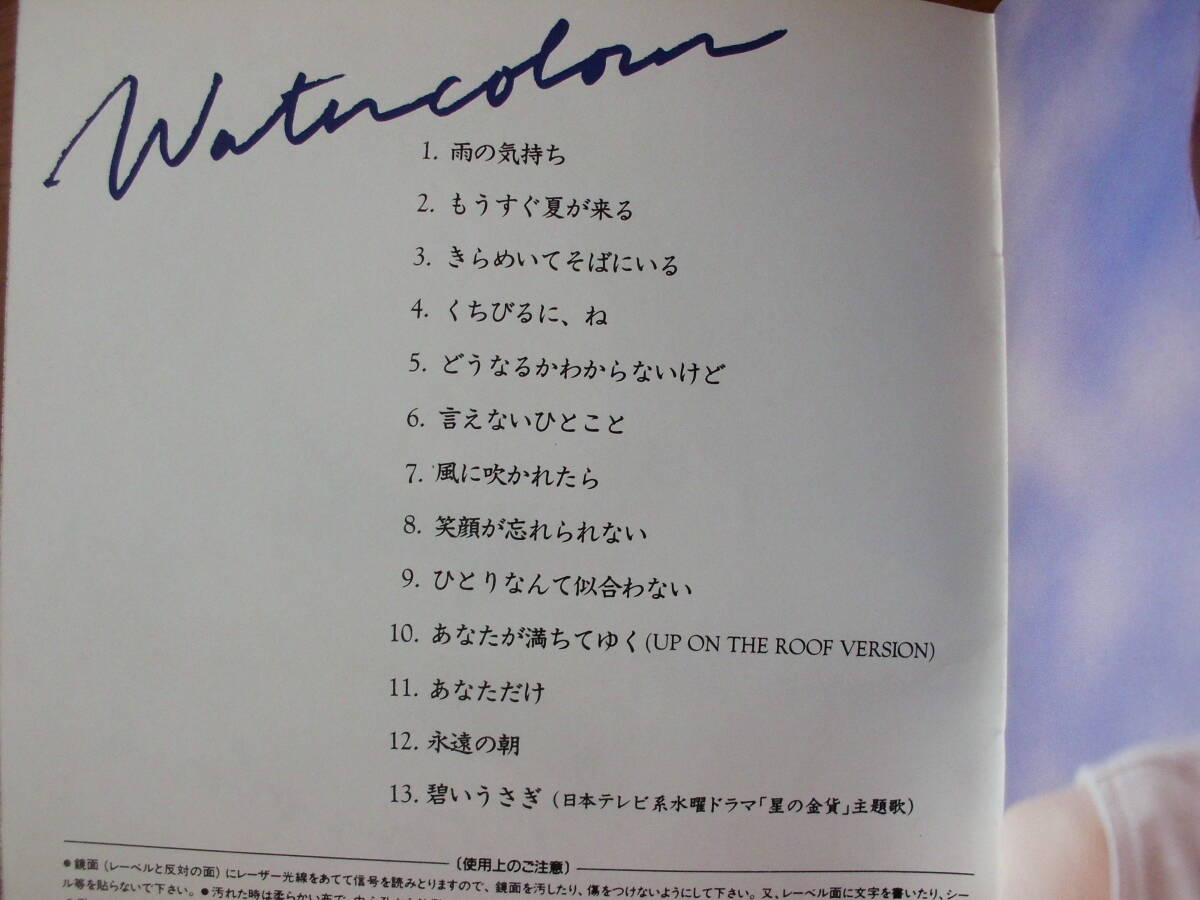 Watercolour
1. 雨の気持ち
2. もうすぐ夏が来る
3. きらめいてそばにいる
4. くちびるに、ね
5. どうなるかわからないけど
6. 言えないひとこと
7. 風に吹かれたら
8. 笑顔が忘れられない
9. ひとりなんて似合わない
10. あなたが満ちてゆく(UP ON THE ROOF VERSION)
11. あなただけ
12. 永遠の朝
13. 碧いうさぎ (日本テレビ系水曜ドラマ「星の金貨」主題歌)
〔使用上のご注意〕
●鏡面(レーベルと反対の面)にレーザー光線をあてて信号を読みとりますので、鏡面を汚したり、傷をつけないようにして下さい。又、レーベル面に文字を書いたり、シー
ル等を貼らないで下さい。●汚れた時は柔らかい布で、